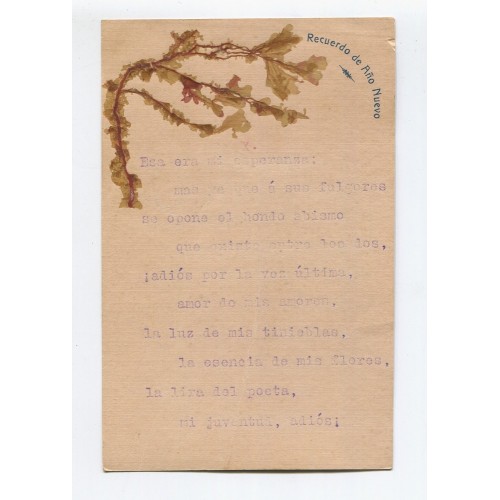 Recuerdo de Año Nuevo
X.
Esa era mi esperanza:
mas ya que á sus fulgores
se opone el hondo abismo
que existe entre los dos,
¡adiós por la vez última,
amor de mis amores,
la luz de mis tinieblas,
la esencia de mis flores,
la lira del poeta,
mi juventud, adiós¡